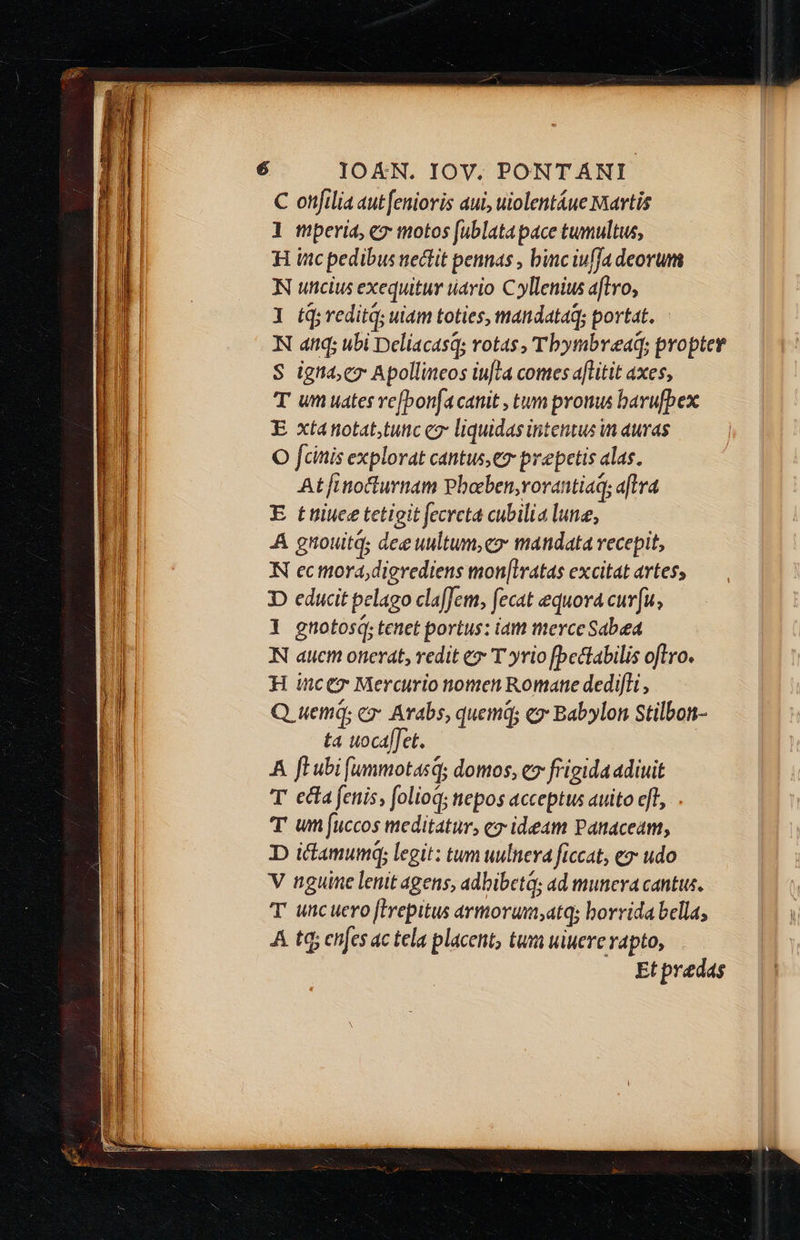 6 IOAN. IOV. PONTANI
C onſilia aut ſenioris aui, uiolentáue Martis
I mperia, & motos ſublata pace tumultus,
H inc pedibus nectit pennas, hinc iuſſa deorum
N uncius exequitur uario Cyllenius aſtro,
I tq; reditq; uiam toties, mandataq; portat.
N anq; ubi Deliacasq; rotas, Thymbreaq; propter
S igna, & Apollineos iuſta comes aſtitit axes,
T um uates reſponſa canit, tum pronus haruſpex
E xta notat, tunc & liquidas intentus in auras
O ſcinis explorat cantus, & præpetis alas.
At ſi nocturnam Phœben, rorantiaq; aſtra
E t niueæ tetigit ſecreta cubilia lunæ,
A gnouitq; deæ uultum, & mandata recepit,
N ec mora, digrediens monſtratas excitat artes,
D educit pelago claſſem, ſecat æquora curſu,
I gnotosq; tenet portus: iam merce Sabæa
N auem onerat, redit & Tyrio ſpectabilis oſtro.
H inc & Mercurio nomen Romane dediſti,
Q uemq; & Arabs, quemq; & Babylon Stilbon-
ta uocaſſet.
A ſt ubi ſummotasq; domos, & frigida adiuit
T ecta ſenis, folioq; nepos acceptus auito eſt,
T um ſuccos meditatur, & ideam Panaceam,
D ictamumq; legit: tum uulnera ſiccat, & udo
V nguine lenit agens, adhibetq; ad munera cantus.
T unc uero ſtrepitus armorum, atq; horrida bella,
A tq; enſes ac tela placent, tum uiuere rapto,
Et prædas